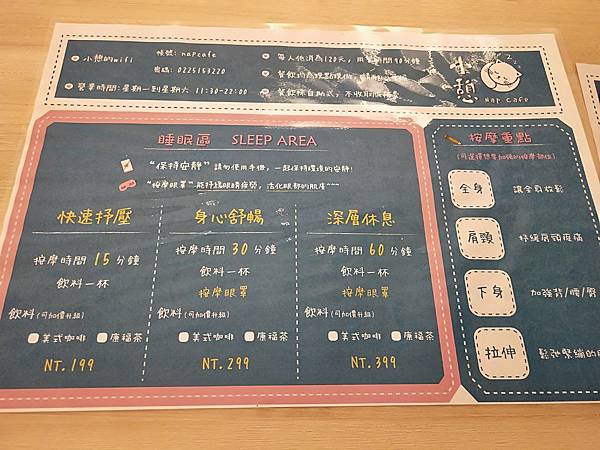 小憩的wifi
帳號: napcafe
密碼: 0225153220
營業時間: 星期一到星期六 11:30-22:00
每人低消為120元，用餐時間90分鐘
餐飲均為現點現做，
餐飲採自助式，不收取服務費
小憩
Nap Cafe
睡眠區 SLEEP AREA
"保持安靜" 請勿使用手機，一起保持環境的安靜!
"按摩眼罩" 能抒緩眼睛疲勞，活化眼部的肌膚~~~
快速抒壓
按摩時間 15 分鐘
飲料一杯
飲料(可加價升級)
美式咖啡 康福茶
NT. 199
身心舒暢
按摩時間 30 分鐘
飲料一杯
按摩眼罩
飲料(可加價升級)
美式咖啡 康福茶
NT. 299
深層休息
按摩時間 60 分鐘
飲料一杯
按摩眼罩
飲料(可加價升級)
美式咖啡 康福茶
NT. 399
按摩重點
(可選擇想要加強的按摩部位)
全身 讓全身放鬆
肩頸 抒緩肩頸痠痛
下身 加強背/腰/臀
拉伸 鬆弛緊繃的